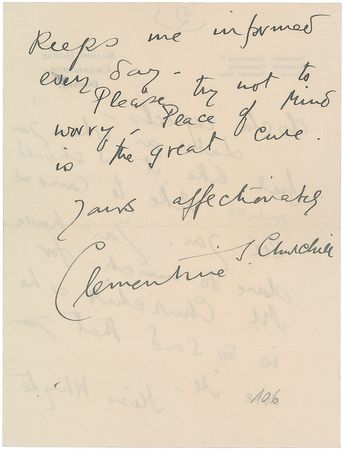 Keeps me informed
every day - 
Please try not to
worry - Peace of Mind
is the great cure.
Yours affectionately
Clementine S. Churchill
106